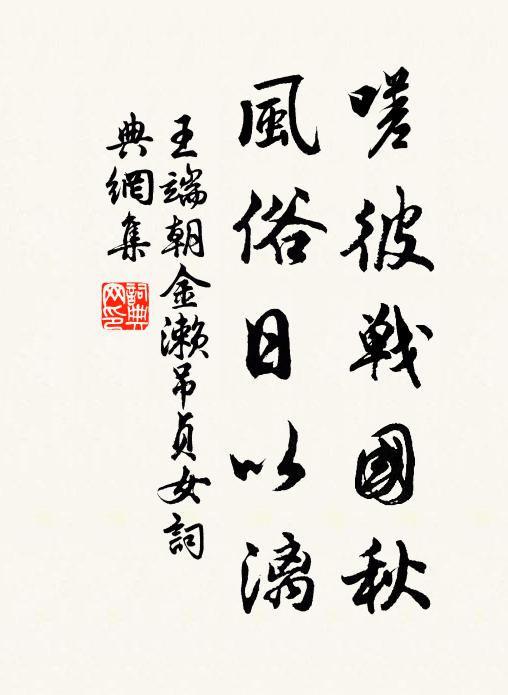 嗟彼戰國秋
風俗日以漓
王端朝金瀨吊貞女詞
典網集
詞典網印